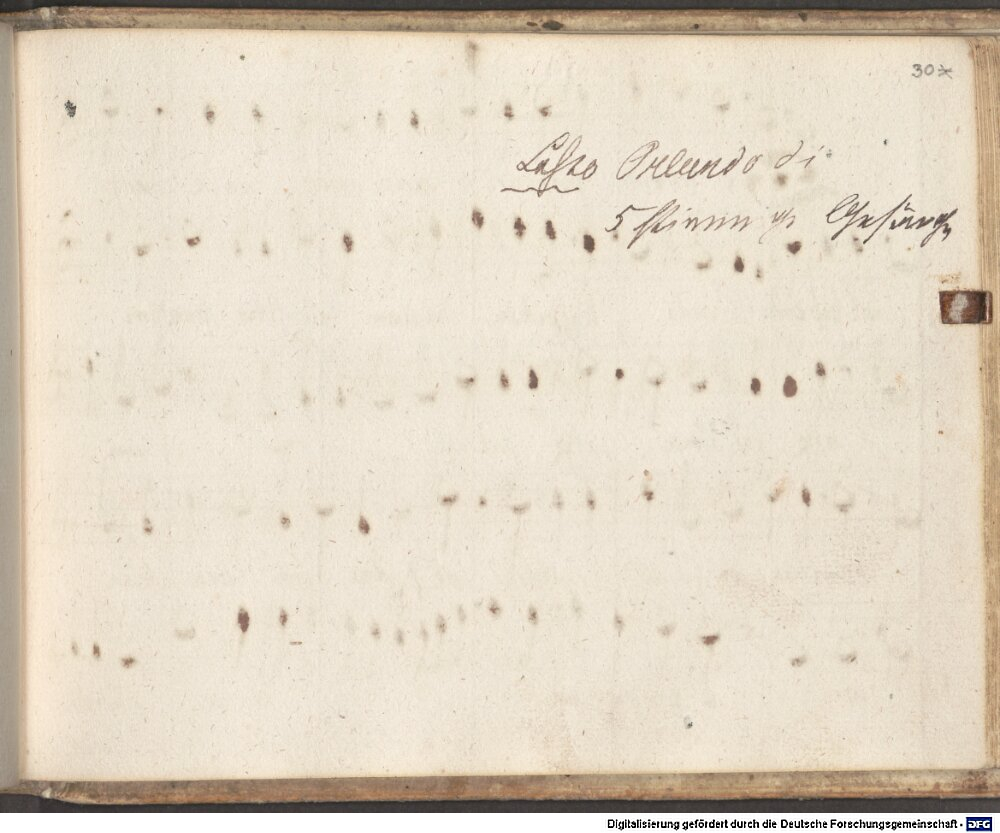 30
Lasso Orlando di
5 stimmige Gesänge
Digitalisierung gefördert durch die Deutsche Forschungsgemeinschaft - DFG